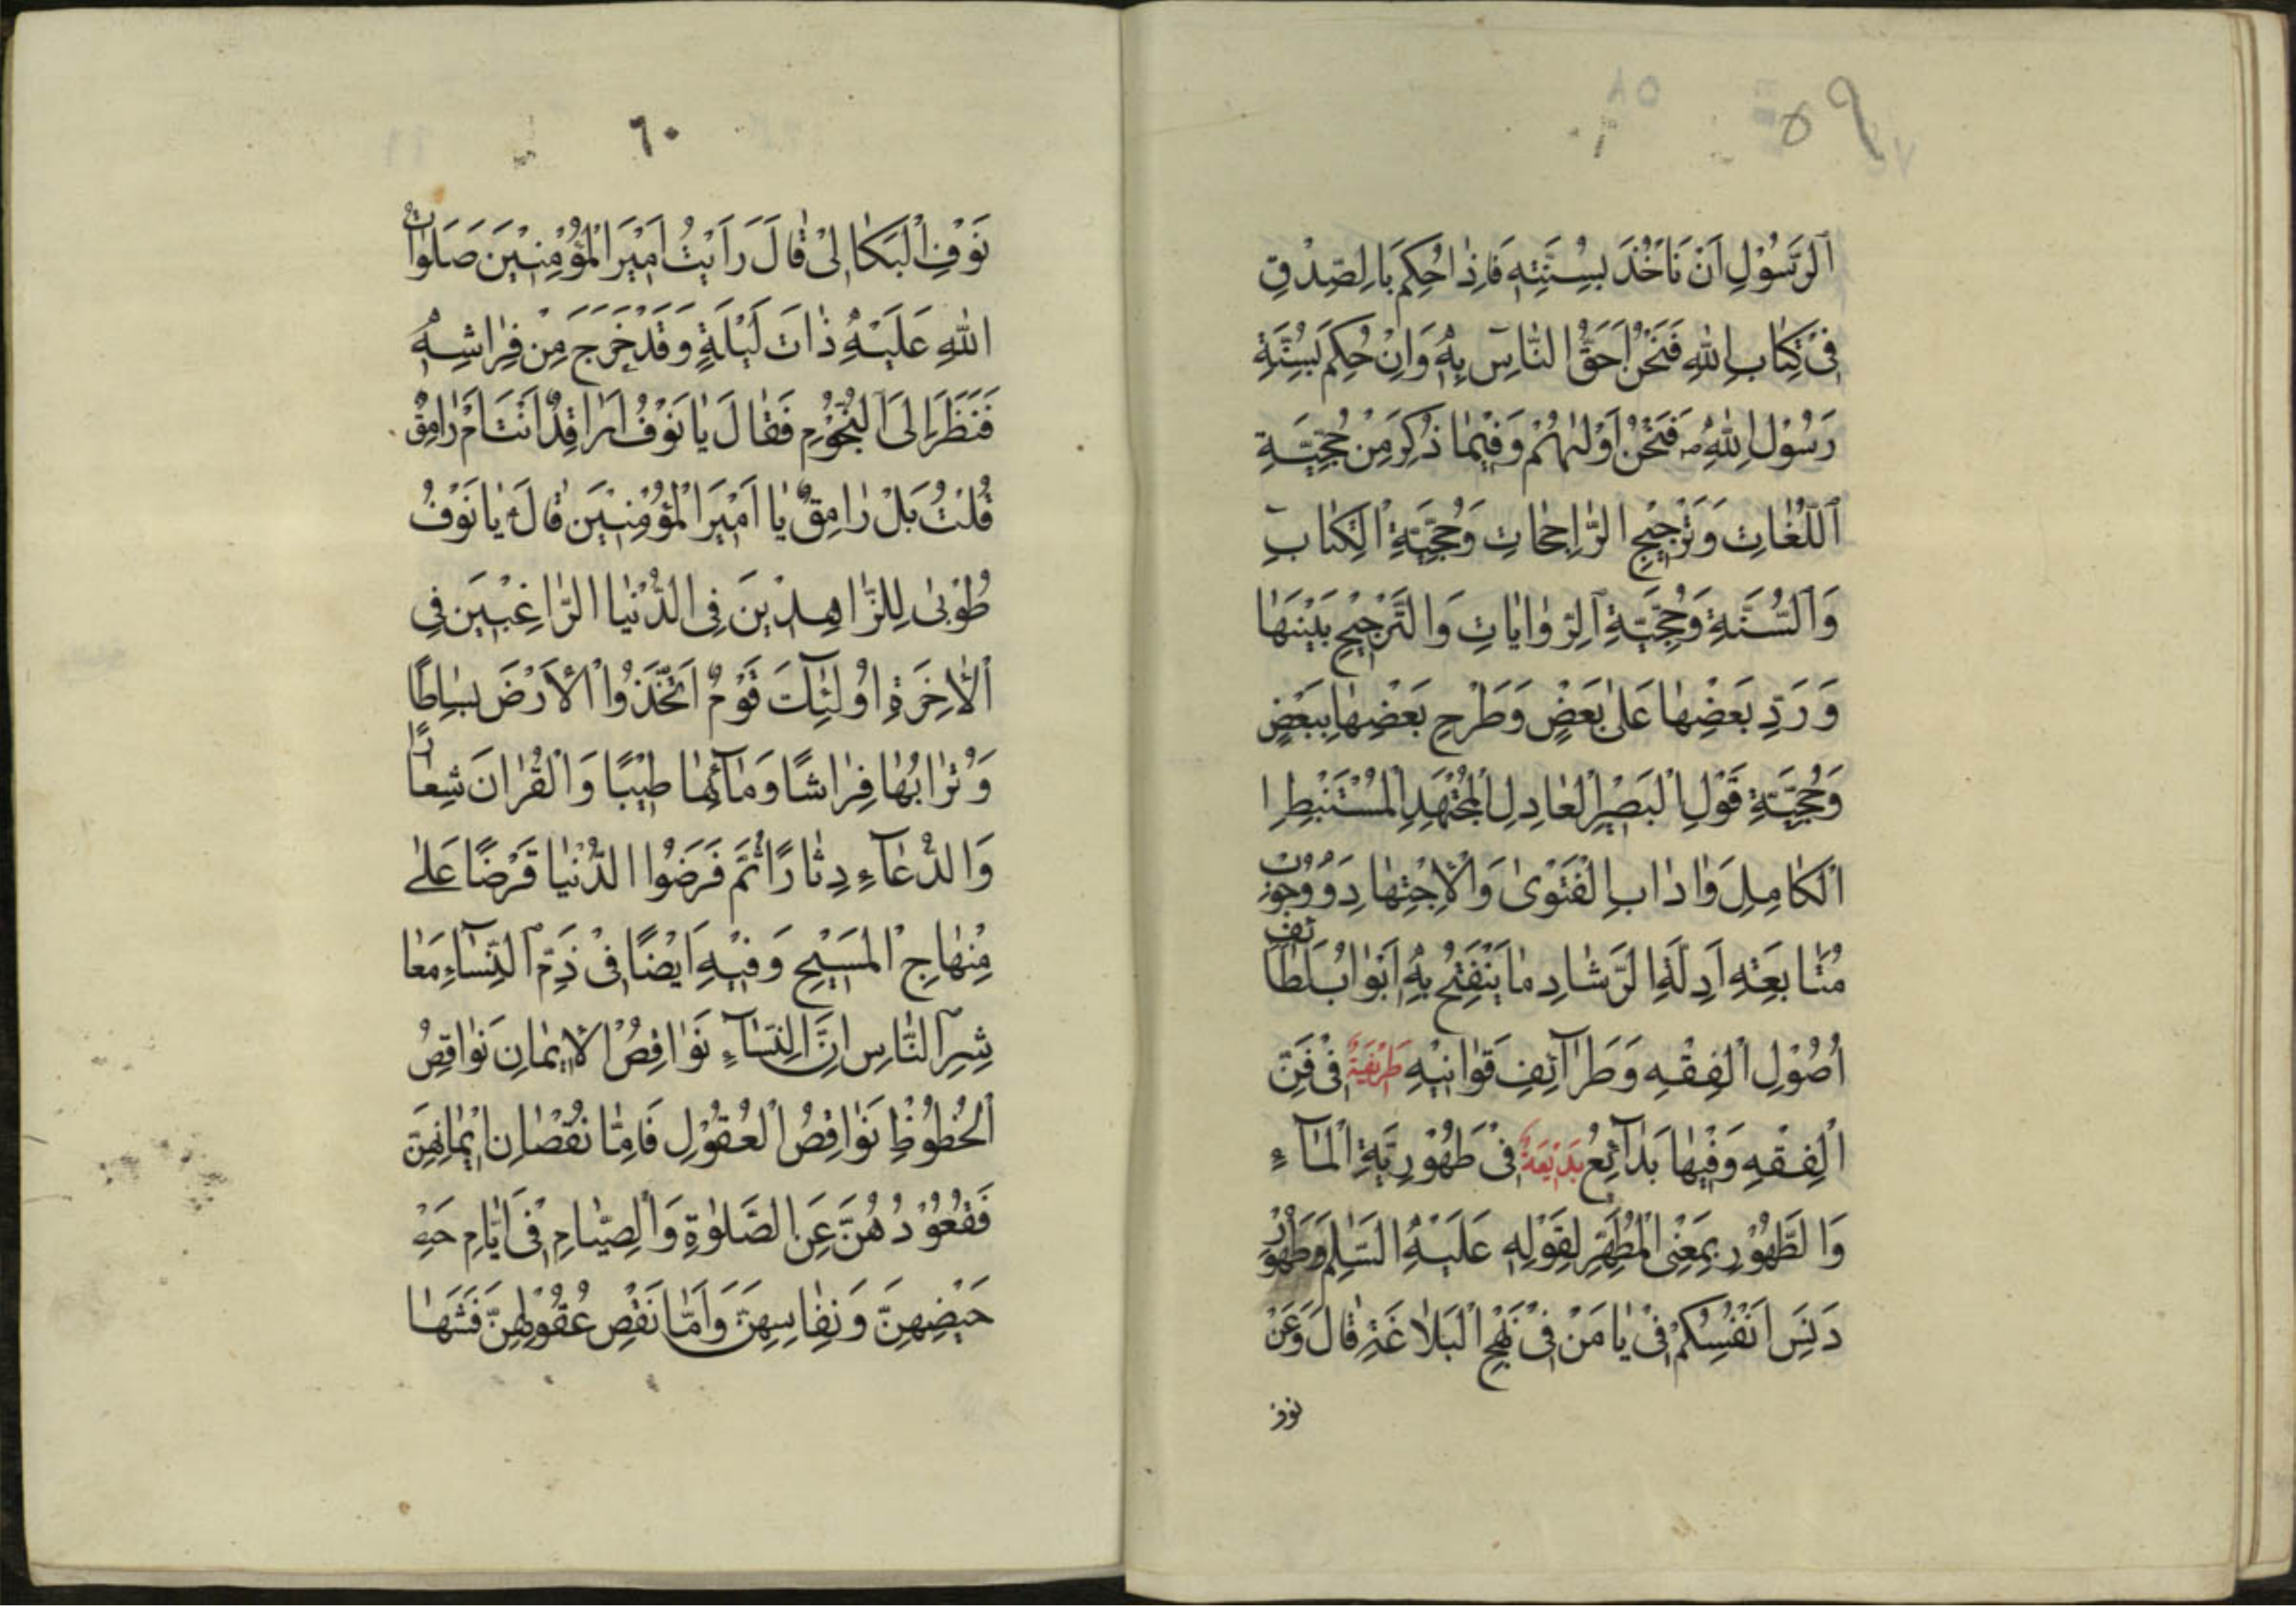 ٥٩
اَلرَّسُوْلِ اَنْ نَاْخُذَ بِسُنَّتِهٖ فَاِذٰا حُكِمَ بِالصِّدْقِ
فِیْ كِتٰابِ اللهِ فَنَحْنُ اَحَقُّ النّٰاسِ بِهٖ وَاِنْ حُكِمَ بِسُنَّةِ
رَسُوْلِ اللهِ ص فَنَحْنُ اَوْلٰیهُمْ وَفِیْمٰا ذُكِرَ مِنْ حُجِّیَّةِ
اَللُّغٰاتِ وَتَرْجِیْحِ الرّٰاجِحٰاتِ وَحُجِّیَّةِ الْكِتٰابِ
وَالسُّنَّةِ وَحُجِّیَّةِ الرِّوٰایٰاتِ وَالتَّرْجِیْحِ بَیْنَهٰا
وَرَدِّ بَعْضِهٰا عَلٰی بَعْضٍ وَطَرْحِ بَعْضِهٰا بِبَعْضٍ
وَحُجِّیَّةِ قَوْلِ الْبَصِیْرِ الْعٰادِلِ الْمُجْتَهِدِ الْمُسْتَنْبِطِ ا
اَلْكٰامِلِ وَاٰدٰابِ الْفَتْوٰی وَالْاِجْتِهٰادِ وَوُجُوْبِ
مُتٰابَعَتِهٖ اَدِلَّةِ الرَّشٰادِ مٰا یَنْفَتِحُ بِهٖ اَبْوٰابُ لَطٰائِفِ
اُصُوْلِ الْفِقْهِ وَطَرٰآئِفِ قَوٰانِیْهِ طَرِیْفَةٌ فِیْ فَنِّ
الْفِقْهِ وَفِیْهٰا بَدٰآئِعُ بَدِیْعَةٌ فِیْ طَهُوْرِیَّةِ الْمٰآءِ
وَالطَّهُوْرِ بِمَعْنَی الْمُطَهِّرِ لِقَوْلِهٖ عَلَیْهِ السَّلٰمُ وَطَهُوْرُ
دَنَسِ اَنْفُسِكُمْ فِیْ یٰا مَنْ فِیْ نَهْجِ الْبَلٰاغَةِ قٰالَ وَعَنْ
نوف
٦٠
نَوْفِ الْبَكٰالِیْ قٰالَ رَاَیْتُ اَمِیْرَ الْمُؤْمِنِیْنَ صَلَوٰاتُ
اللهِ عَلَیْهِ ذٰاتَ لَیْلَةٍ وَقَدْ خَرَجَ مِنْ فِرٰاشِهٖ
فَنَظَرَ اِلَی النُّجُوْمِ فَقٰالَ یٰا نَوْفُ اَرٰاقِدٌ اَنْتَ اَمْ رٰامِقٌ
قُلْتُ بَلْ رٰامِقٌ یٰا اَمِیْرَ الْمُؤْمِنِیْنَ قٰالَ یٰا نَوْفُ
طُوْبیٰ لِلزّٰاهِدِیْنَ فِی الدُّنْیٰا الرّٰاغِبِیْنَ فِی
الْاٰخِرَةِ اُولٰئِكَ قَوْمٌ اتَّخَذُوا الْاَرْضَ بِسٰاطًا
وَتُرٰابُهٰا فِرٰاشًا وَمٰآئَهٰا طِیْبًا وَالْقُرْاٰنَ شِعٰارًا
وَالدُّعٰآءِ دِثٰارًا ثُمَّ قَرَضُوا الدُّنْیٰا قَرْضًا عَلٰی
مِنْهٰاجِ الْمَسِیْحِ وَفِیْهِ اَیْضًا فِیْ ذَمِّ النِّسٰآءِ مَعٰا
شِرَ النّٰاسِ اِنَّ النِّسٰآءِ نَوٰاقِصُ الْاِیْمٰانِ نَوٰاقِصُ
الْحُظُوْظِ نَوٰاقِصُ الْعُقُوْلِ فَاَمّٰا نُقْصٰانِ اِیْمٰانِهِنَّ
فَقُعُوْدُهُنَّ عَنِ الصَّلٰوةِ وَالصِّیٰامِ فِیْ اَیّٰامِ حَیْ
حَیْضِهِنَّ وَنِفٰاسِهِنَّ وَاَمّٰا نَقْصُ عُقُوْلِهِنَّ فَشَهٰا